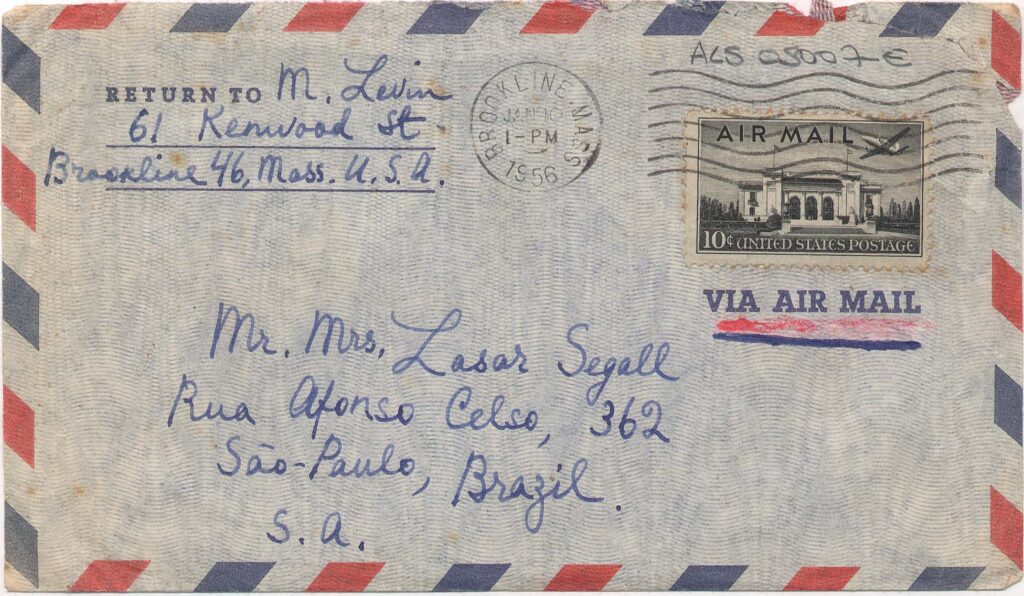 ALS 05007-E
RETURN TO M. Levin
61 Kenwood St.
Brookline 46, Mass. U.S.A.
BROOKLINE, MASS
JAN 10
1-PM
1956
AIR MAIL
10¢ UNITED STATES POSTAGE
VIA AIR MAIL
Mr. Mrs. Lasar Segall
Rua Afonso Celso, 362
São-Paulo, Brazil.
S.A.